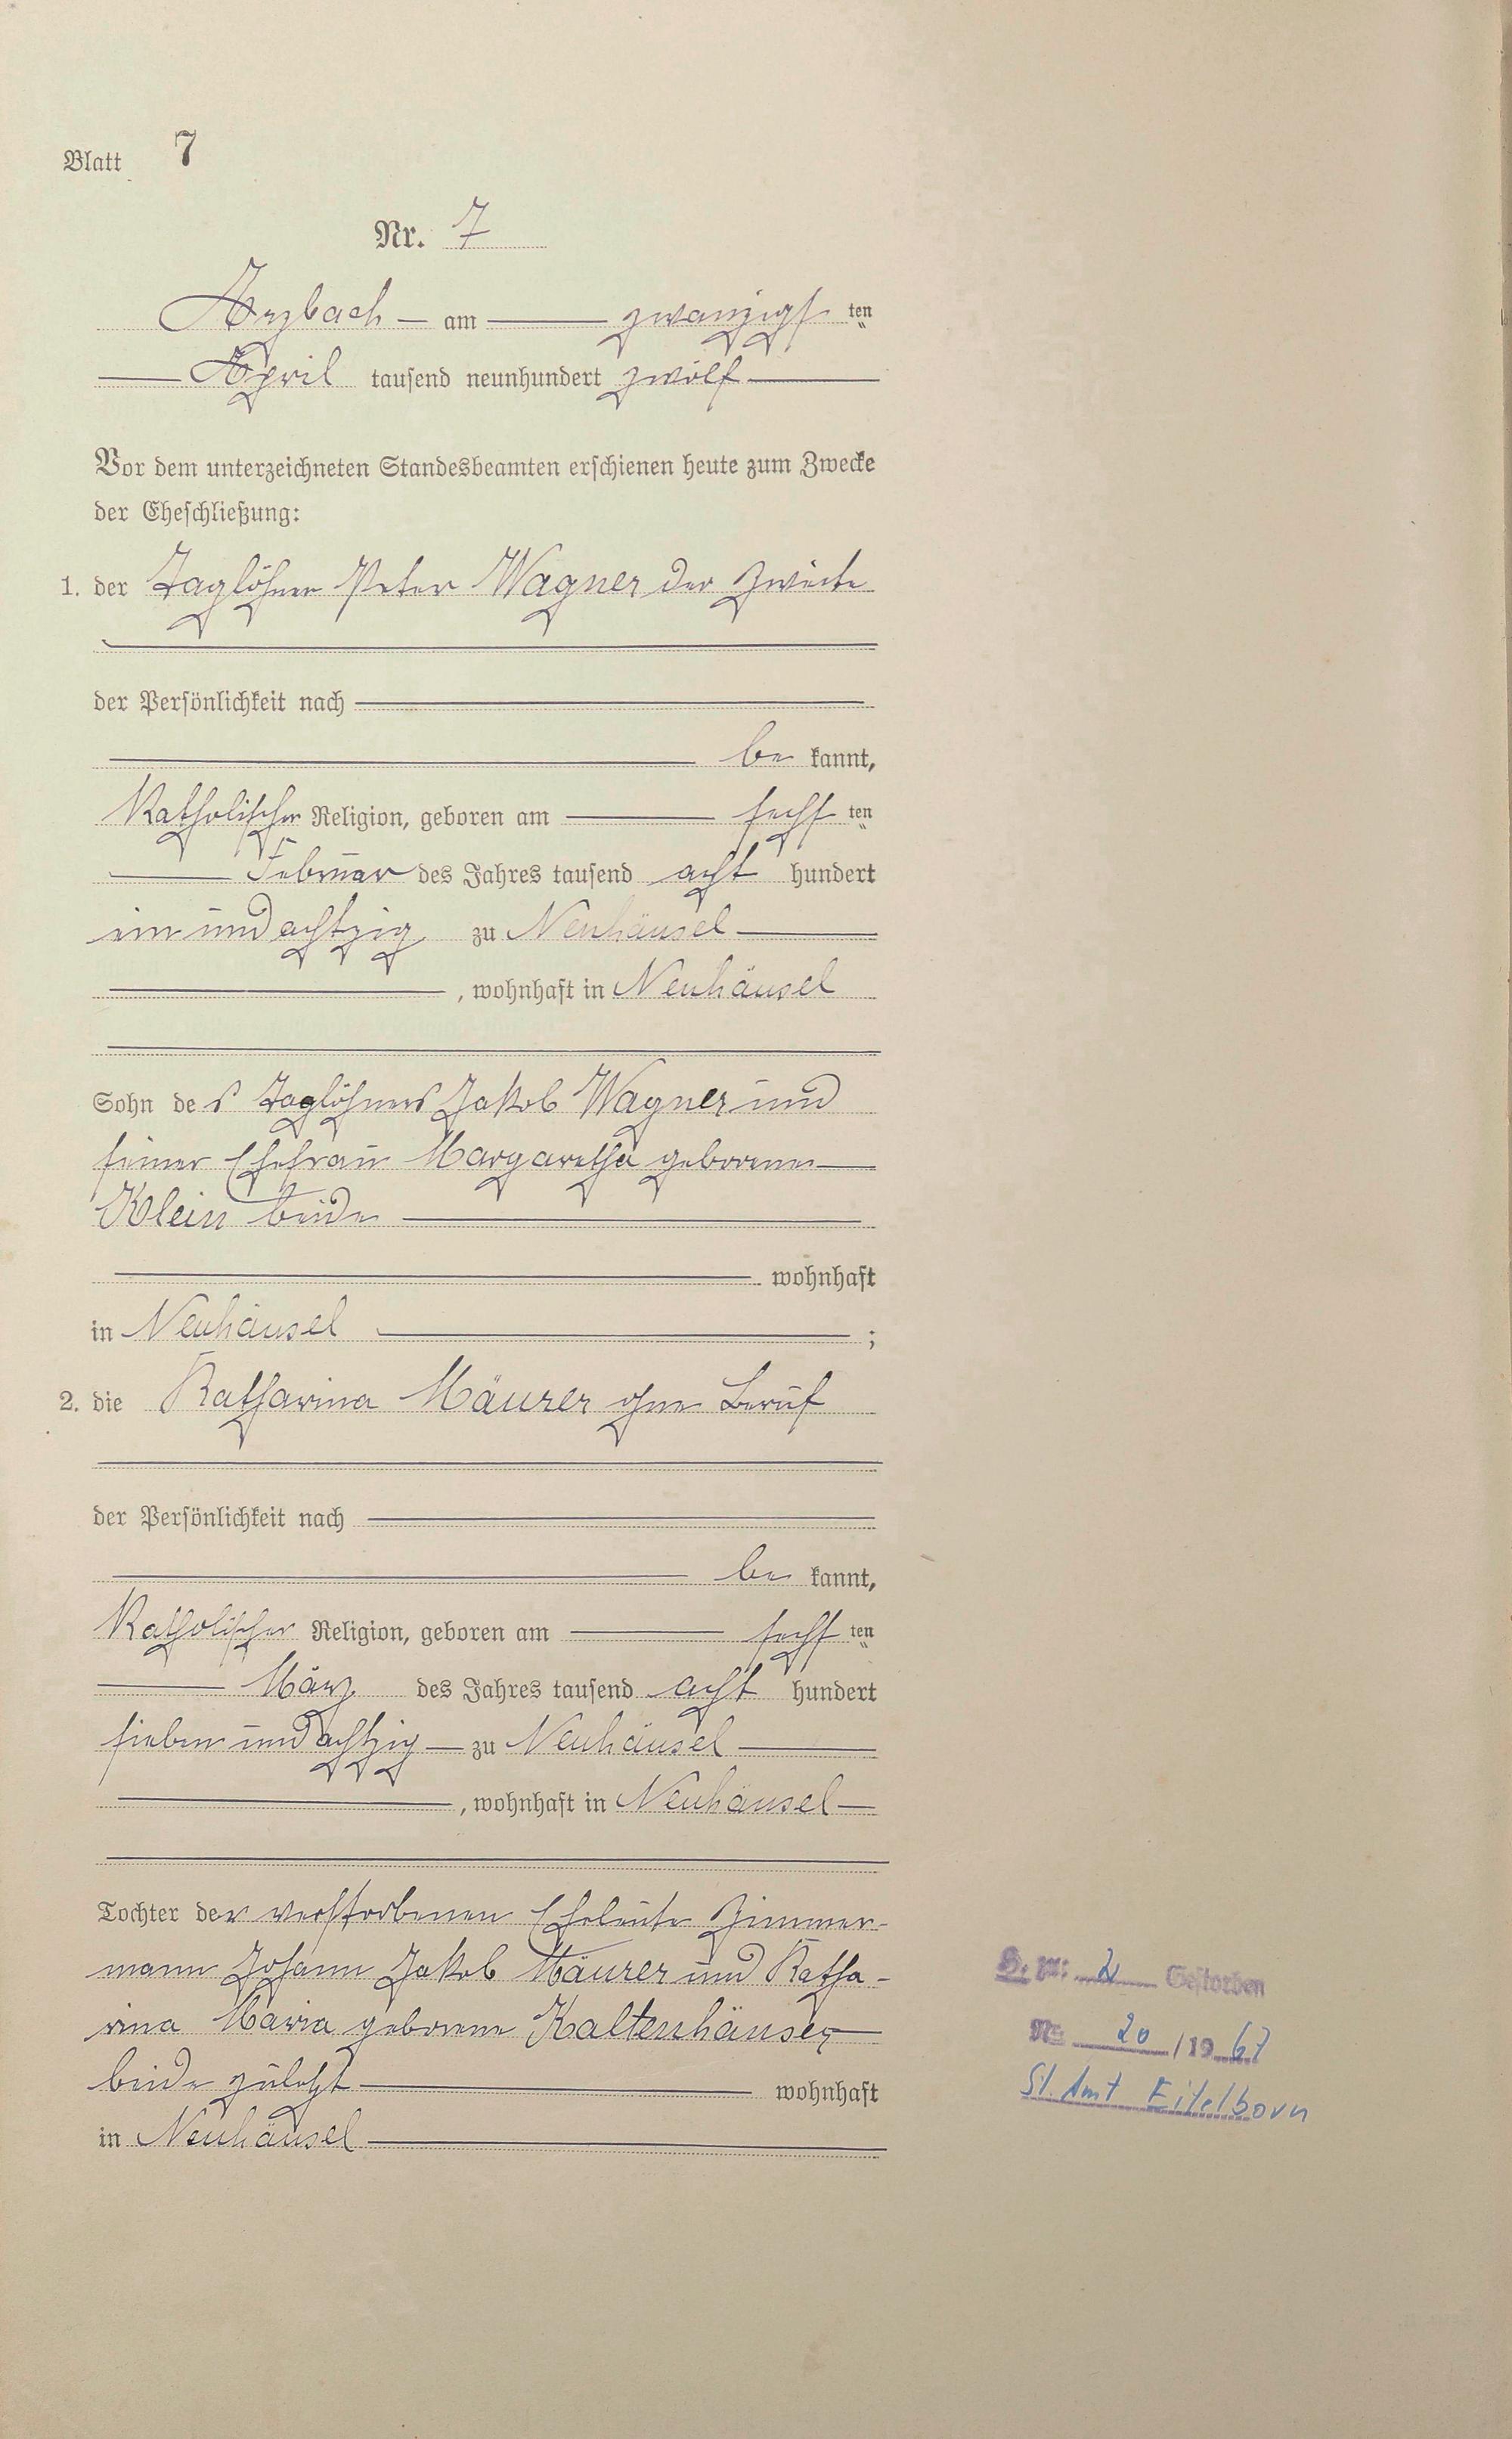 Blatt 7
Nr. 7
Arzbach am zwanzigsten
April tausend neunhundert zwölf
Vor dem unterzeichneten Standesbeamten erschienen heute zum Zwecke
der Eheschließung:
1. der Taglöhner Peter Wagner der Zweite
der Persönlichkeit nach
be kannt,
Katholischer Religion, geboren am sechsten
Februar des Jahres tausend acht hundert
ein und achtzig zu Neuhäusel
, wohnhaft in Neuhäusel
Sohn des Taglöhners Jakob Wagner und
seiner Ehefrau Margaretha geborenen
Klein beide
wohnhaft
in Neuhäusel ;
2. die Katharina Mäurer ohne Beruf
der Persönlichkeit nach
be kannt,
Katholischer Religion, geboren am sechsten
März des Jahres tausend acht hundert
sieben und achtzig zu Neuhäusel
, wohnhaft in Neuhäusel
Tochter der verstorbenen Eheleute Zimmer-
mann Johann Jakob Mäurer und Katha-
rina Maria geborene Kaltenhäuser
beide zuletzt wohnhaft
in Neuhäusel
2 Gestorben
No 20 / 19 67
St. Amt Eitelborn